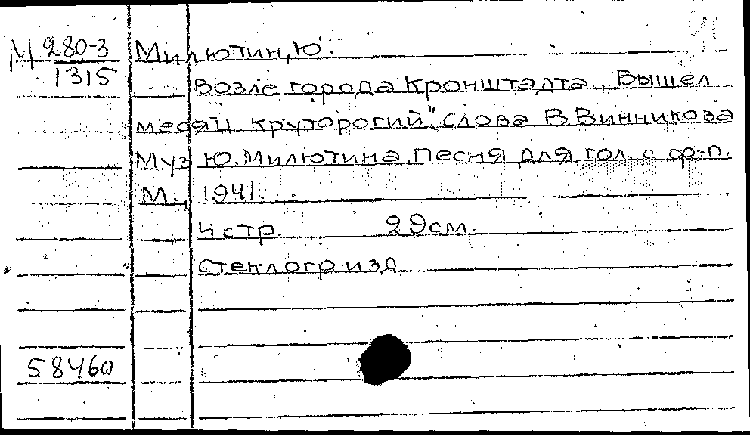 М 280-3
1315
Милютин, Ю.
Возле города Кронштадта. „Вышел
месяц круторогий", слова В. Винникова
Муз Ю. Милютина. Песня для гол. с ф-п.
М., 1941.
4 стр. 29см.
стеклогр изд
58460